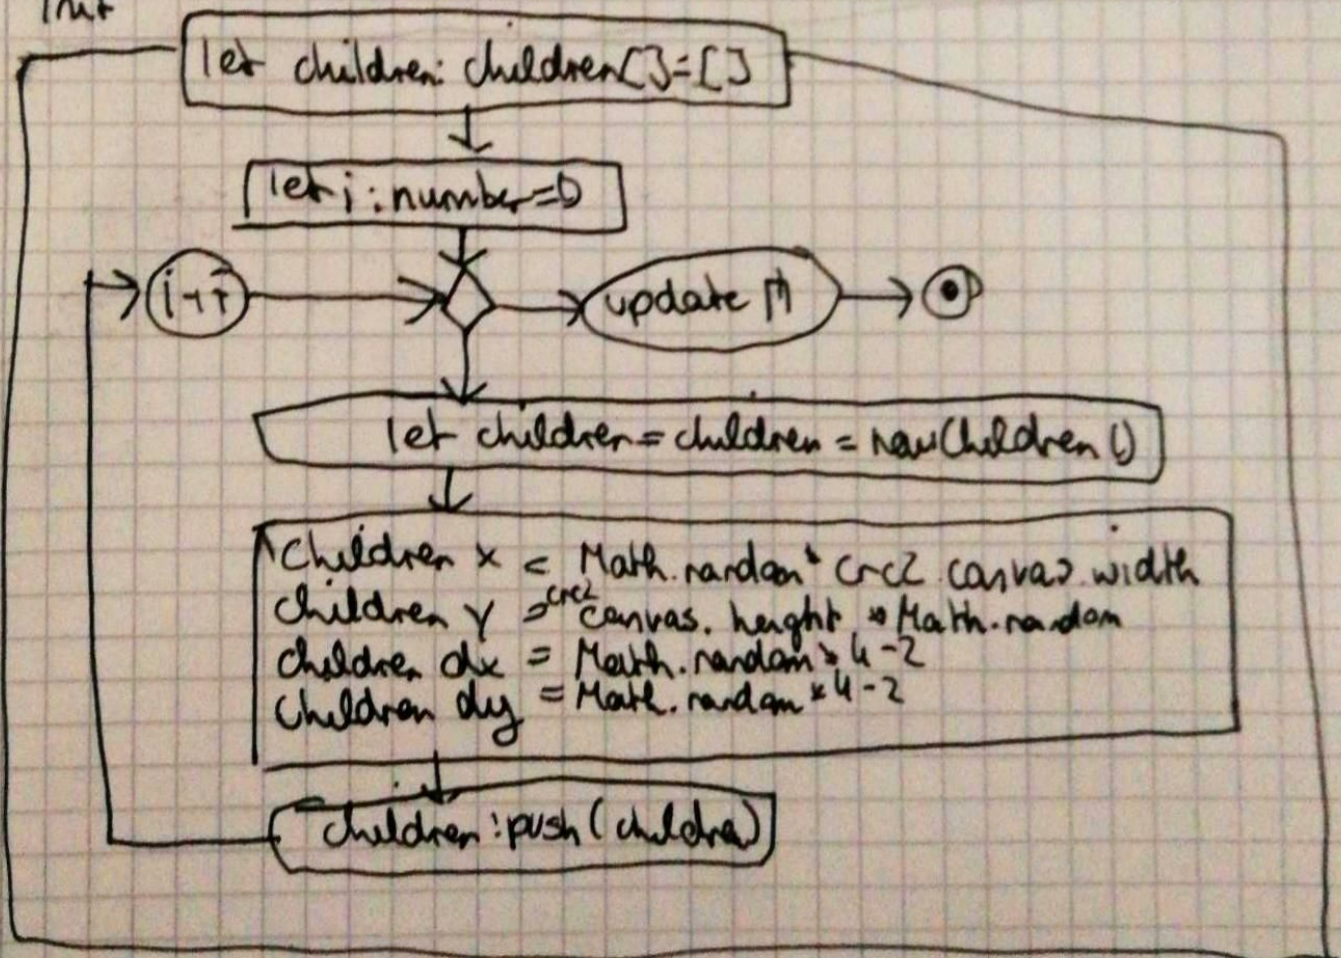 Init
let children: children[]=[]
let i: number=0
i++
update
let children = children = new Children ()
Children x = Math.random * crc2 canvas width
Children y = crc2 canvas. height * Math.random
Children dx = Math.random * 4-2
Children dy = Math.random * 4-2
children:push (children)